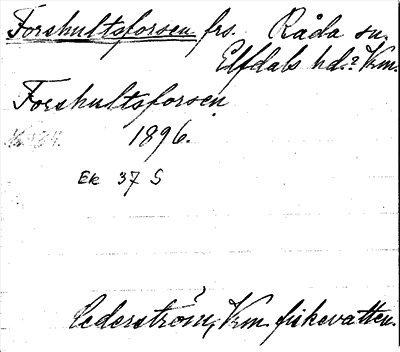 Forshultsforsen frs. Råda sn.
Elfdals hd.? Vrm.
Forshultsforsen
1896.
Ek 37 S
Cederström, Vrm. fiskevatten.